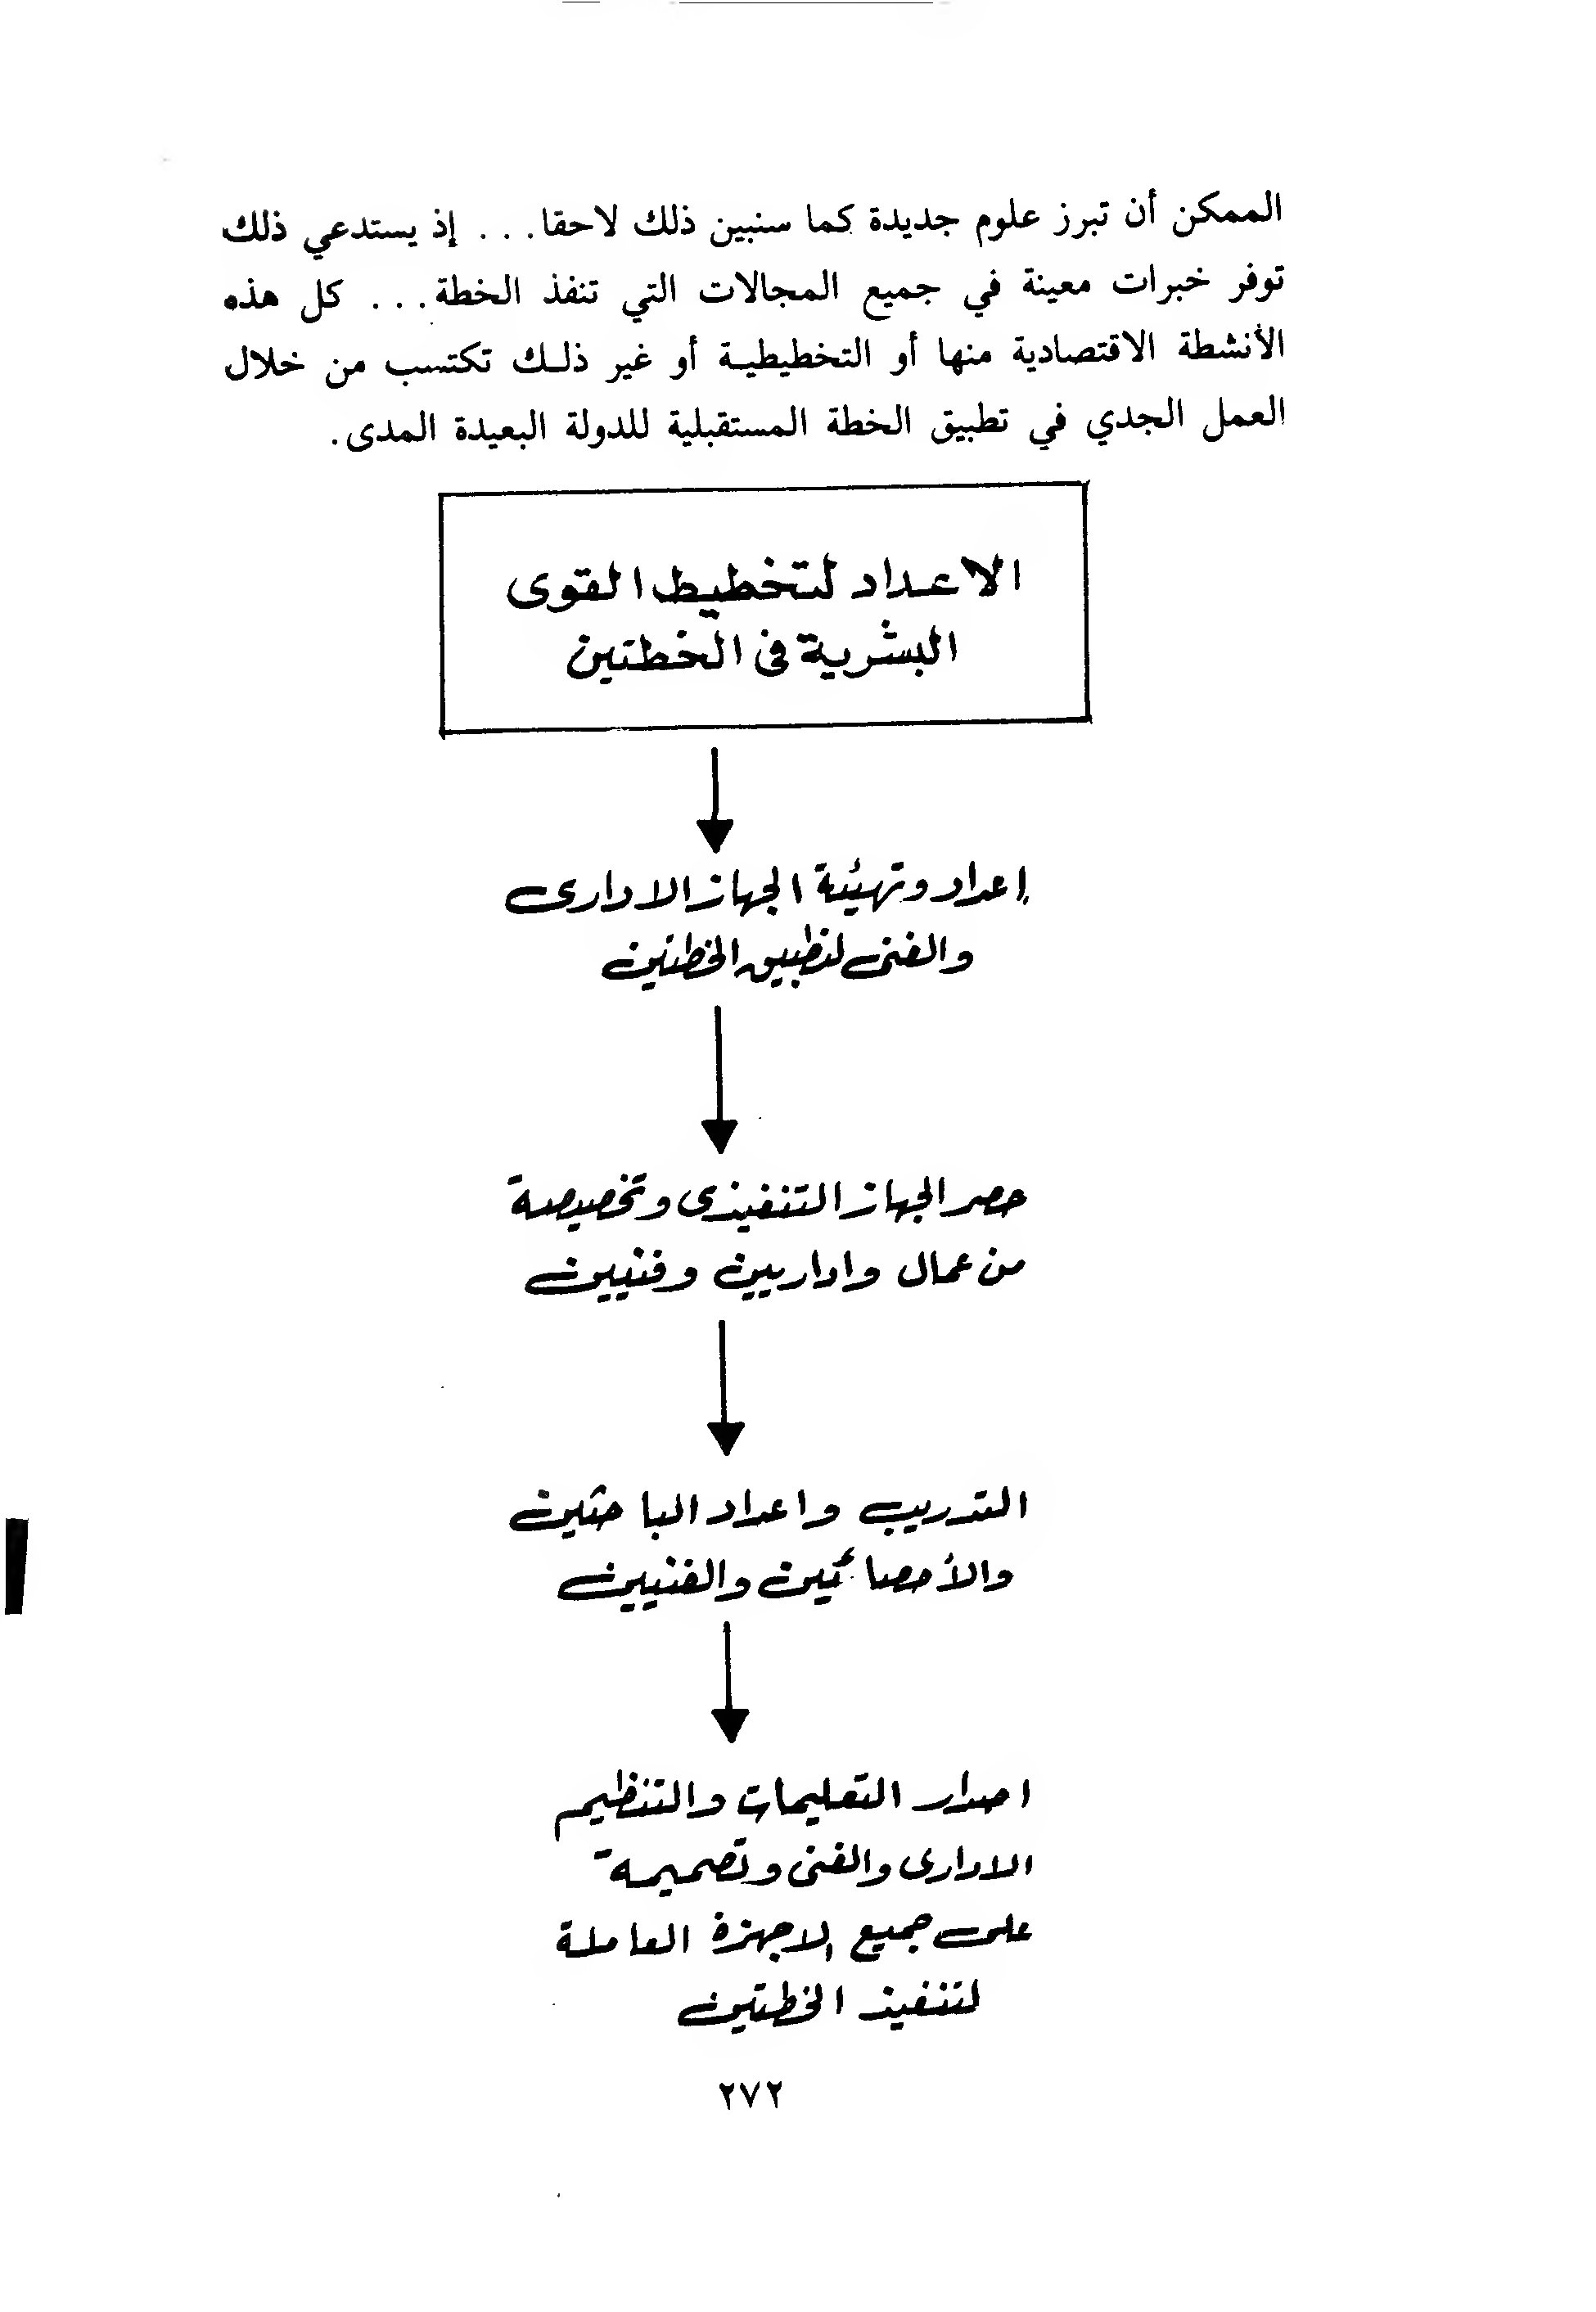 الممكن أن تبرز علوم جديدة كما سنبين ذلك لاحقا... إذ يستدعي ذلك
توفر خبرات معينة في جميع المجالات التي تنفذ الخطة... كل هذه
الأنشطة الاقتصادية منها أو التخطيطية أو غير ذلك تكتسب من خلال
العمل الجدي في تطبيق الخطة المستقبلية للدولة البعيدة المدى.
الاعداد لتخطيط القوى
البشرية فى الخطتين
إعداد وتهيئة الجهاز الادارى
والفنى لتطبيق الخطتين
حصر الجهاز التنفيذى وتخصيصة
من عمال واداريين وفنيين
التدريب واعداد الباحثين
والأحصائيين والفنيين
اصدار التعليمات والتنظيم
الادارى والفنى وتصميمة
على جميع الاجهزة العاملة
لتنفيذ الخطتين
٢٧٢